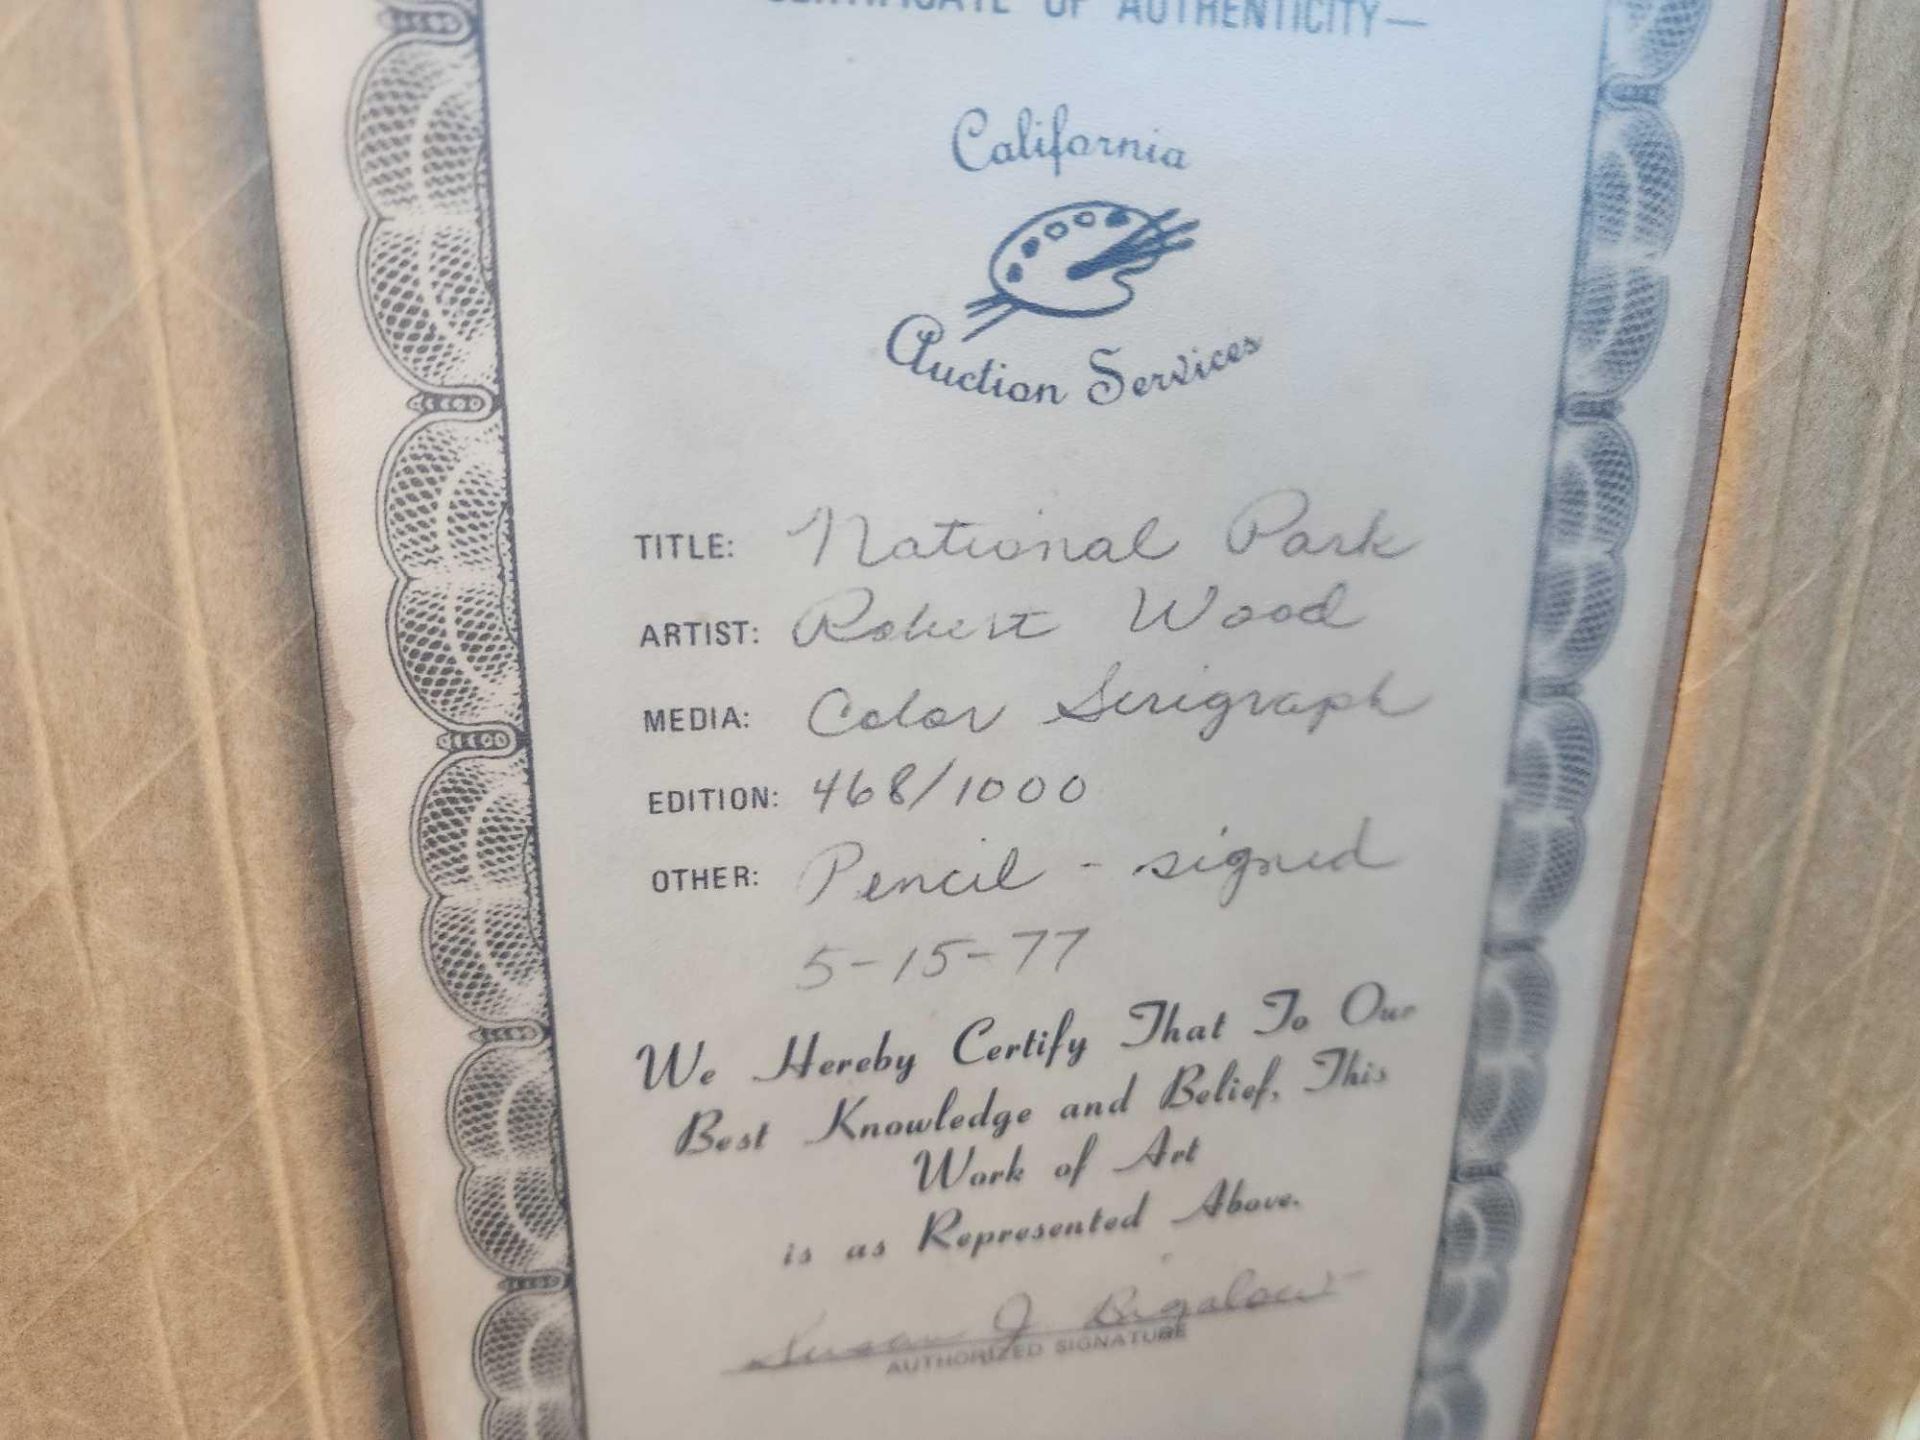 CERTIFICATE OF AUTHENTICITY—
California
Auction Services
TITLE: National Park
ARTIST: Robert Wood
MEDIA: Color Serigraph
EDITION: 468/1000
OTHER: Pencil - signed
5-15-77
We Hereby Certify That To Our
Best Knowledge and Belief, This
Work of Art
is as Represented Above.
Susan J. Bigalow
AUTHORIZED SIGNATURE